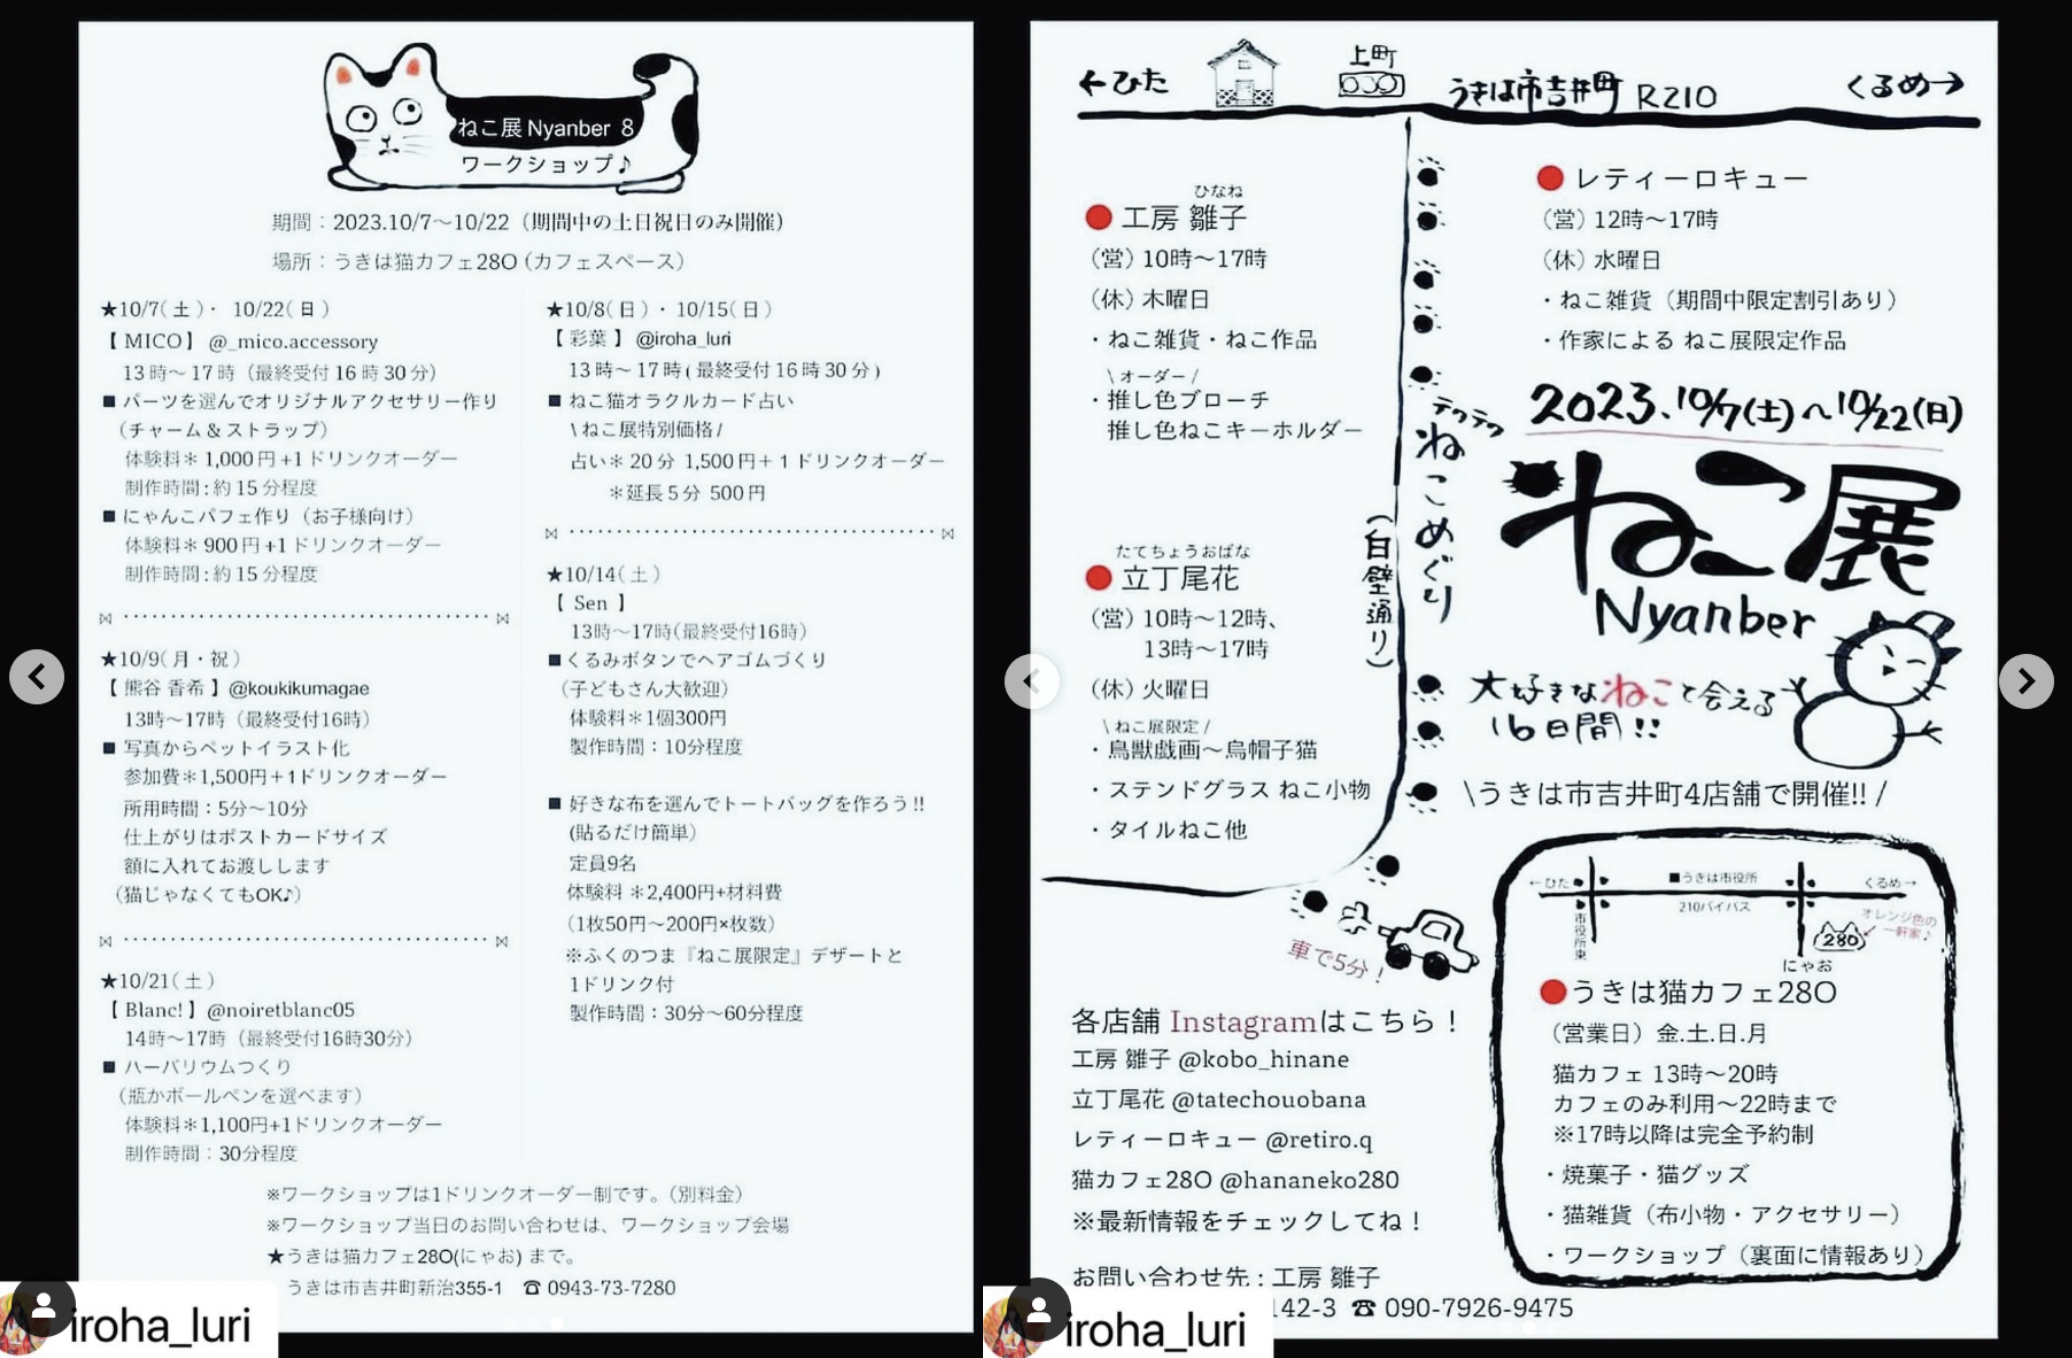 ねこ展 Nyanber 8
ワークショップ♪
期間：2023.10/7～10/22（期間中の土日祝日のみ開催）
場所：うきは猫カフェ28O（カフェスペース）
★10/7(土)・ 10/22(日)
【 MICO】 @_mico.accessory
13時～17時（最終受付16時30分）
■ パーツを選んでオリジナルアクセサリー作り
（チャーム＆ストラップ）
体験料＊1,000円+1ドリンクオーダー
制作時間:約15分程度
■ にゃんこパフェ作り（お子様向け）
体験料＊900円+1ドリンクオーダー
制作時間:約15分程度
★10/9(月・祝)
【 熊谷 香希 】@koukikumagae
13時～17時（最終受付16時）
■ 写真からペットイラスト化
参加費＊1,500円＋1ドリンクオーダー
所用時間：5分～10分
仕上がりはポストカードサイズ
額に入れてお渡しします
（猫じゃなくてもOK♪）
★10/21(土)
【 Blanc!】@noiretblanc05
14時～17時（最終受付16時30分）
■ ハーバリウムつくり
（瓶かボールペンを選べます）
体験料＊1,100円+1ドリンクオーダー
制作時間：30分程度
★10/8(日)・10/15(日)
【 彩葉 】 @iroha_luri
13時～17時(最終受付16時30分)
■ ねこ猫オラクルカード占い
\ ねこ展特別価格 /
占い＊20分 1,500円＋1ドリンクオーダー
＊延長5分 500円
★10/14(土)
【 Sen 】
13時～17時(最終受付16時)
■ くるみボタンでヘアゴムづくり
（子どもさん大歓迎）
体験料＊1個300円
製作時間：10分程度
■ 好きな布を選んでトートバッグを作ろう!!
(貼るだけ簡単)
定員9名
体験料 ＊2,400円+材料費
（1枚50円～200円×枚数）
※ふくのつま『ねこ展限定』デザートと
1ドリンク付
製作時間：30分～60分程度
※ワークショップは1ドリンクオーダー制です。（別料金）
※ワークショップ当日のお問い合わせは、ワークショップ会場
★うきは猫カフェ28O(にゃお) まで。
うきは市吉井町新治355-1 ☎ 0943-73-7280
iroha_luri
←ひた
上町
うきは市吉井町 R210
くるめ→
ひなね
工房 雛子
（営）10時～17時
（休）木曜日
・ねこ雑貨・ねこ作品
\ オーダー /
・推し色ブローチ
推し色ねこキーホルダー
たてちょうおばな
立丁尾花
（営）10時～12時、
13時～17時
（休）火曜日
\ ねこ展限定 /
・鳥獣戯画～烏帽子猫
・ステンドグラス ねこ小物
・タイルねこ他
テクテク
ねこめぐり
（白壁通り）
レティーロキュー
（営）12時～17時
（休）水曜日
・ねこ雑貨（期間中限定割引あり）
・作家による ねこ展限定作品
2023.10/7(土)～10/22(日)
ねこ展
Nyanber
大好きなねこと会える
16日間!!
\うきは市吉井町4店舗で開催!! /
車で5分！
←ひた
■うきは市役所
くるめ→
210バイパス
市役所東
オレンジ色の
一軒家♪
280
にゃお
うきは猫カフェ28O
（営業日）金.土.日.月
猫カフェ 13時～20時
カフェのみ利用～22時まで
※17時以降は完全予約制
・焼菓子・猫グッズ
・猫雑貨（布小物・アクセサリー）
・ワークショップ（裏面に情報あり）
各店舗 Instagramはこちら！
工房 雛子 @kobo_hinane
立丁尾花 @tatechouobana
レティーロキュー @retiro.q
猫カフェ28O @hananeko280
※最新情報をチェックしてね！
お問い合わせ先 : 工房 雛子
142-3 ☎ 090-7926-9475
iroha_luri